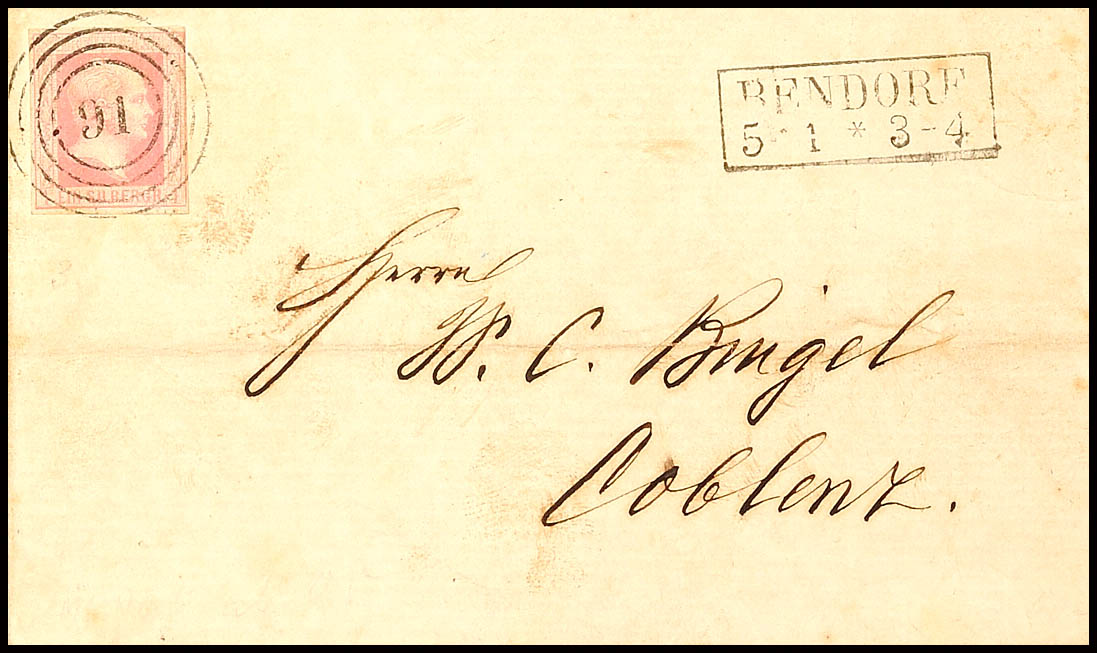 91
EIN SILBERGR.
BENDORF
5 1 * 3-4
Herrn
W. C. Bingel
Coblenz.